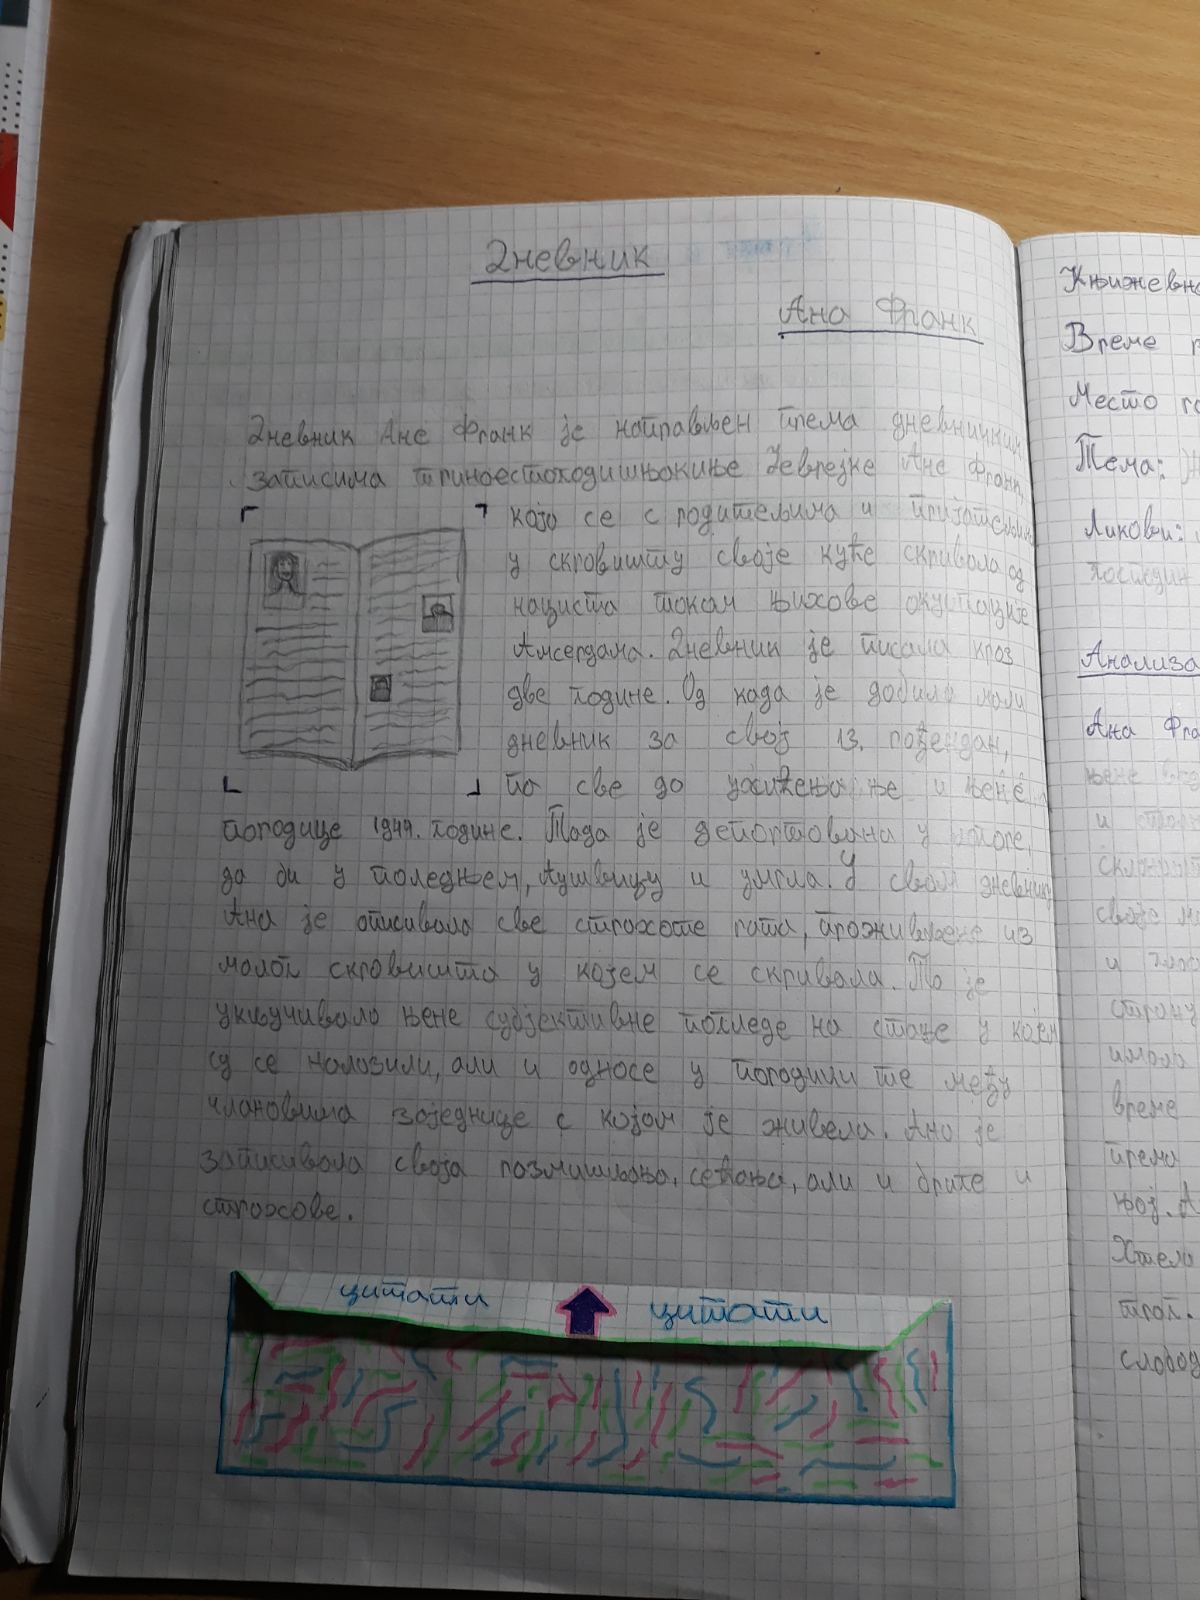 Дневник
Ана Франк
Дневник Ане Франк је направљен према дневничким
записима тринаестогодишњакиње Јеврејке Ане Франк,
која се с родитељима и пријатељима
у скровишту своје куће скривала од
нациста током њихове окупације
Амсердама. Дневник је писала кроз
две године. Од када је добила мали
дневник за свој 13. рођендан,
па све до хићења ње и њене
породице 1944. године. Тада је депортована у логоре,
да би у поледњем, Аушвицу и умрла. У свом дневнику
Ана је описивала све страхоте рата, проживљене из
малог скровишта у којем се скривала. То је
укључивало њене субјективне погледе на стање у којем
су се налазили, али и односе у породици те међу
члановима заједнице с којом је живела. Ана је
записивала своја размишљања, сећања, али и бриге и
страхове.
цитати цитати
Књижевно
Време
Место
Тема:
Ликови:
господин
Анализа
Ана Фра
њене
и
своје
и
страну
имала
време
према
њој. А
Хтела
слобод